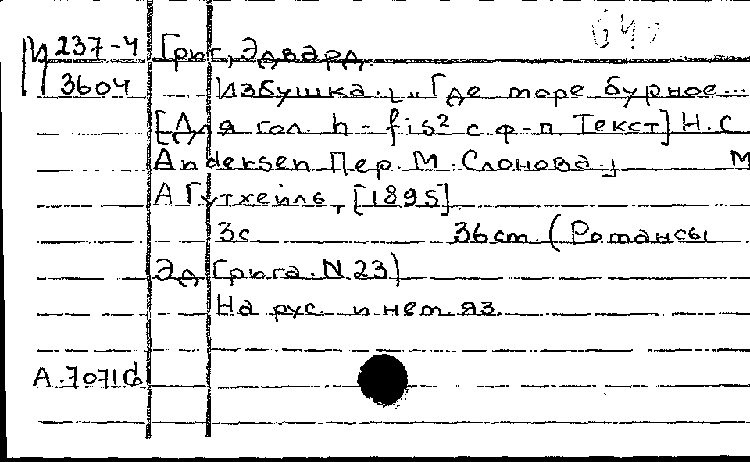 640
М 237-4 Григ, Эдвард.
3604 Избушка. „Где море бурное...
[Для гол. h - fis² с ф-п. Текст] H. C
Andersen Пер. М. Слонова.] М
А Гутхейль, [1895]
3с 36cm (Романсы
Эд Грига. N 23)
На рус и нем яз.
А.7071